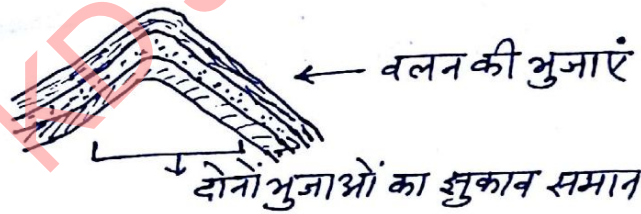 वलन की भुजाएं
दोनों भुजाओं का झुकाव समान